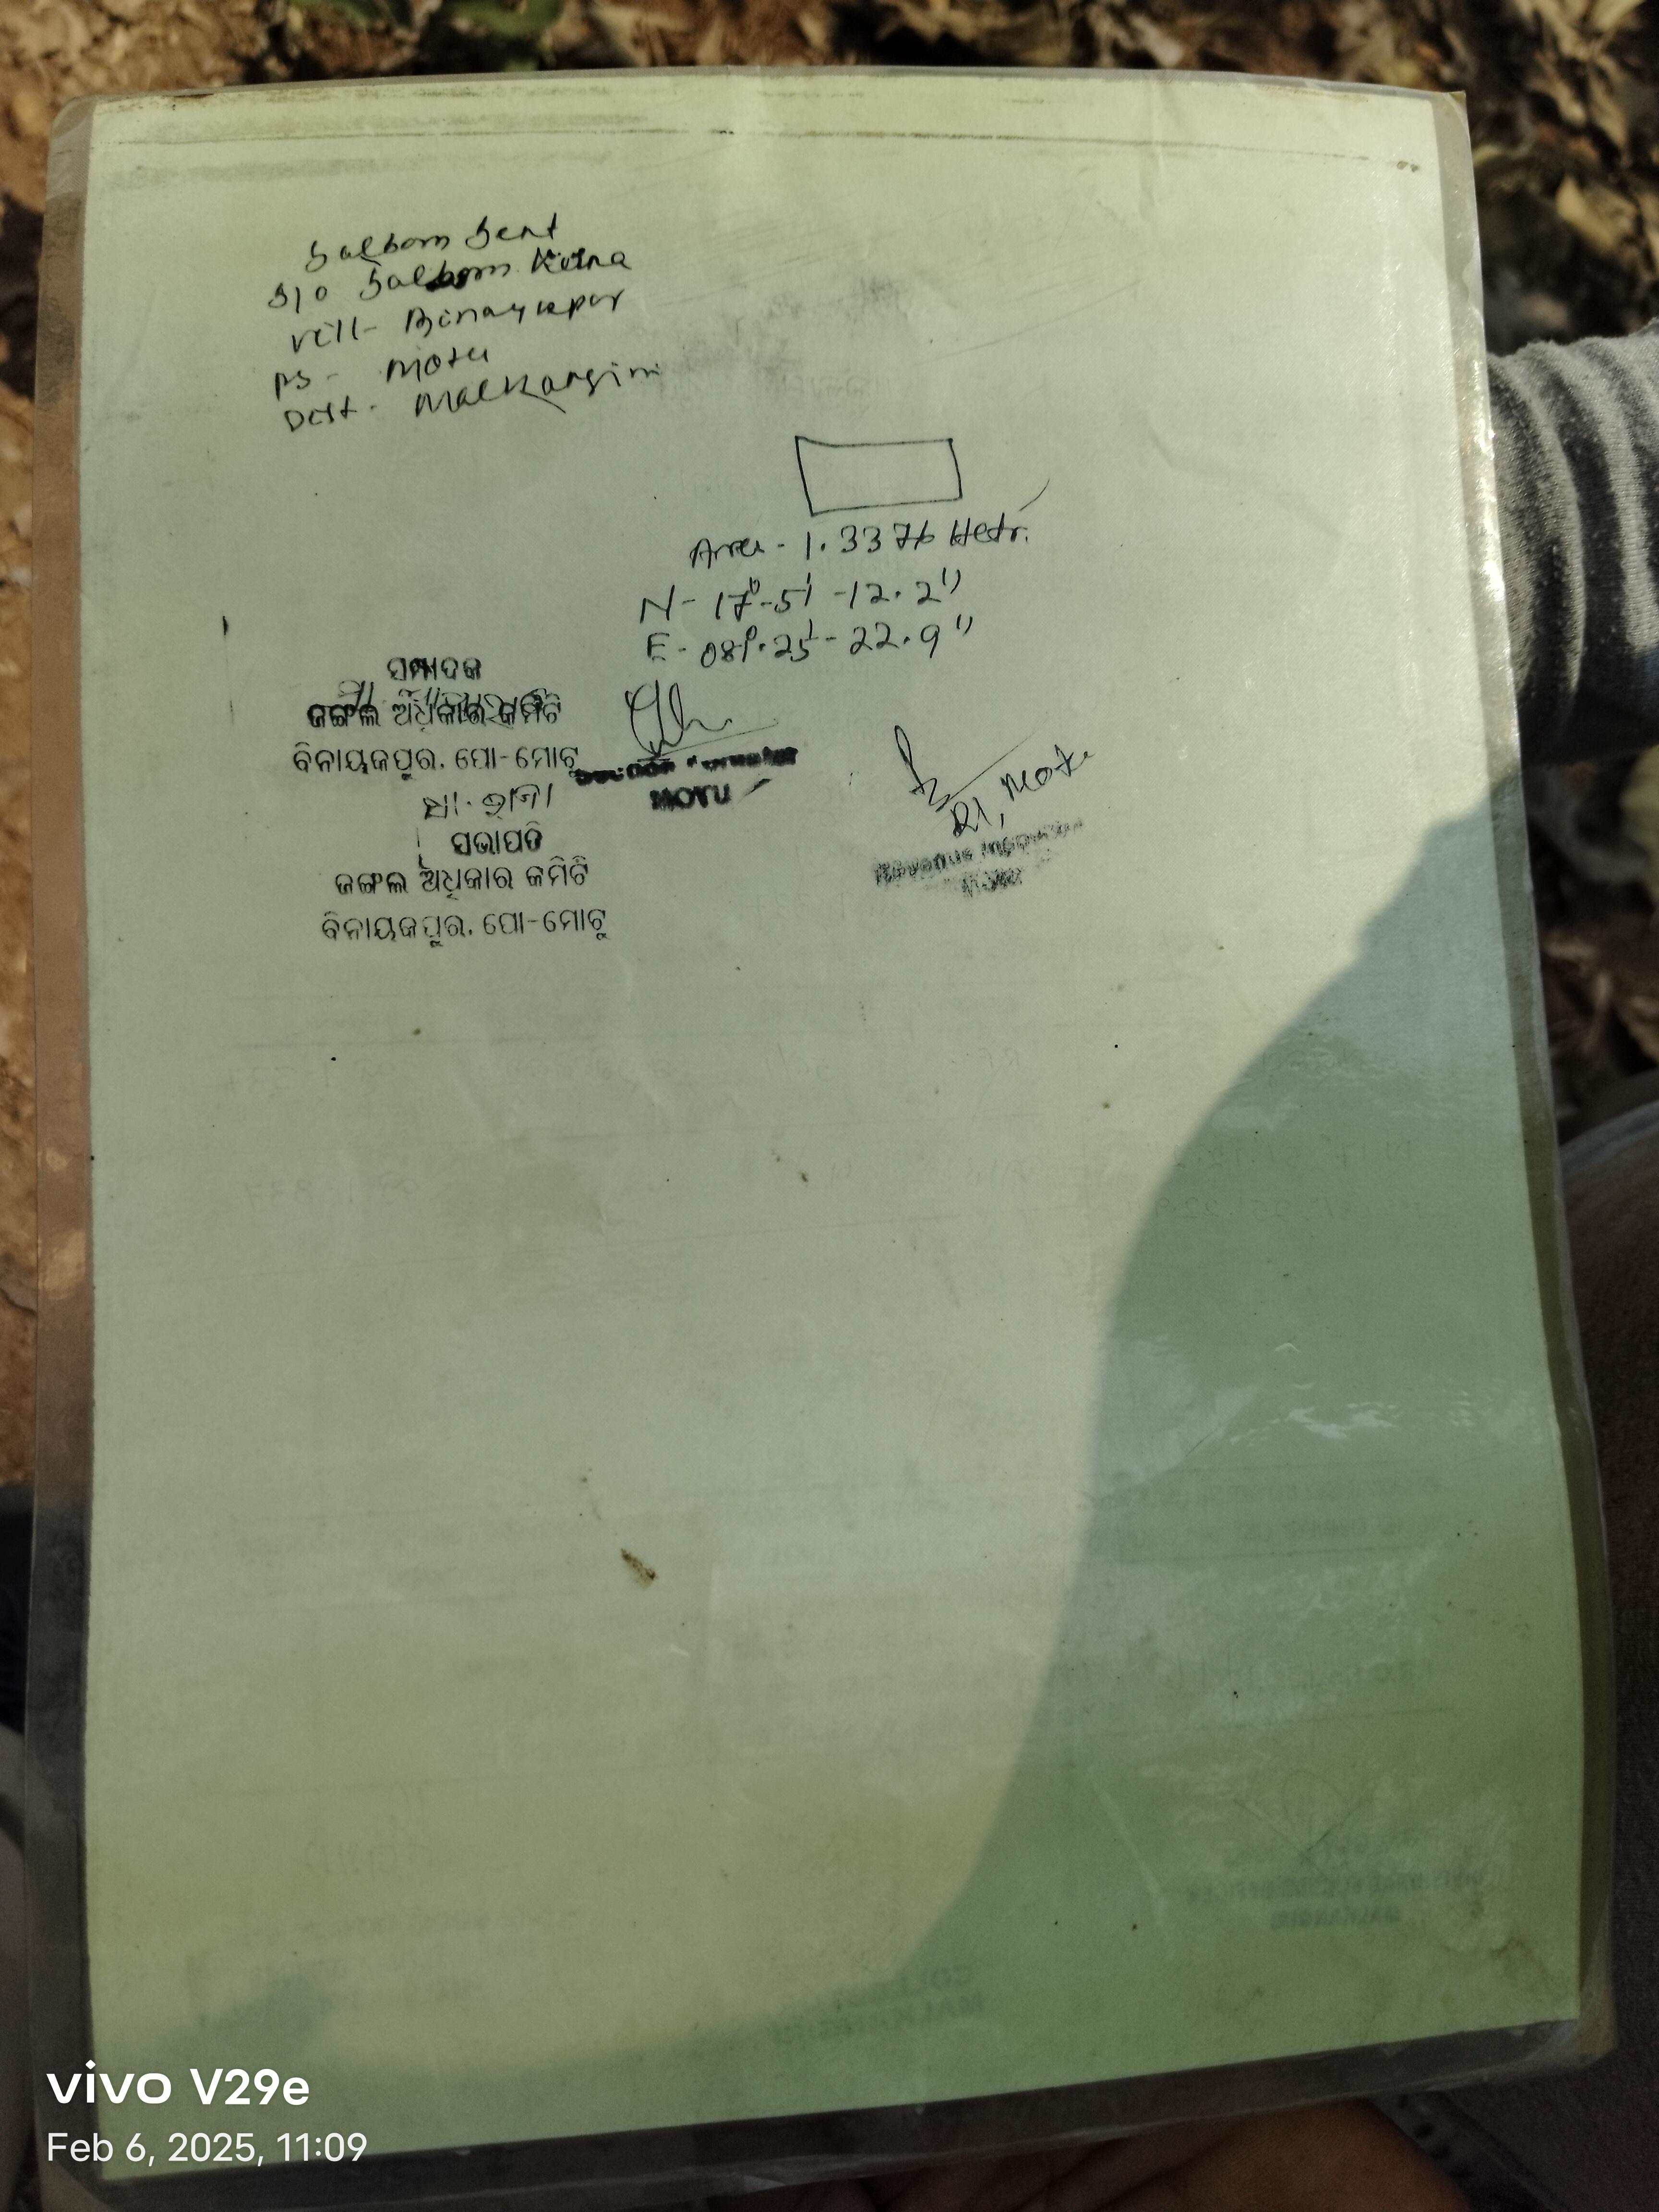 Salbom Sent
S/o Salbom Kesna
vill- Binayakpur
PS- Motu
Dist- Malkangiri
Area- 1.3376 Hectr.
N- 17°-51'-12.2"
E- 081°.25'- 22.9"
ସମ୍ପାଦକ
ଜଙ୍ଗଲ ଅଧିକାର କମିଟି
ବିନାୟକପୁର. ପୋ-ମୋଟୁ
MOTU
RI, Motu
Revenue Inspector
ସଭାପତି
ଜଙ୍ଗଲ ଅଧିକାର କମିଟି
ବିନାୟକପୁର. ପୋ-ମୋଟୁ
vivo V29e
Feb 6, 2025, 11:09